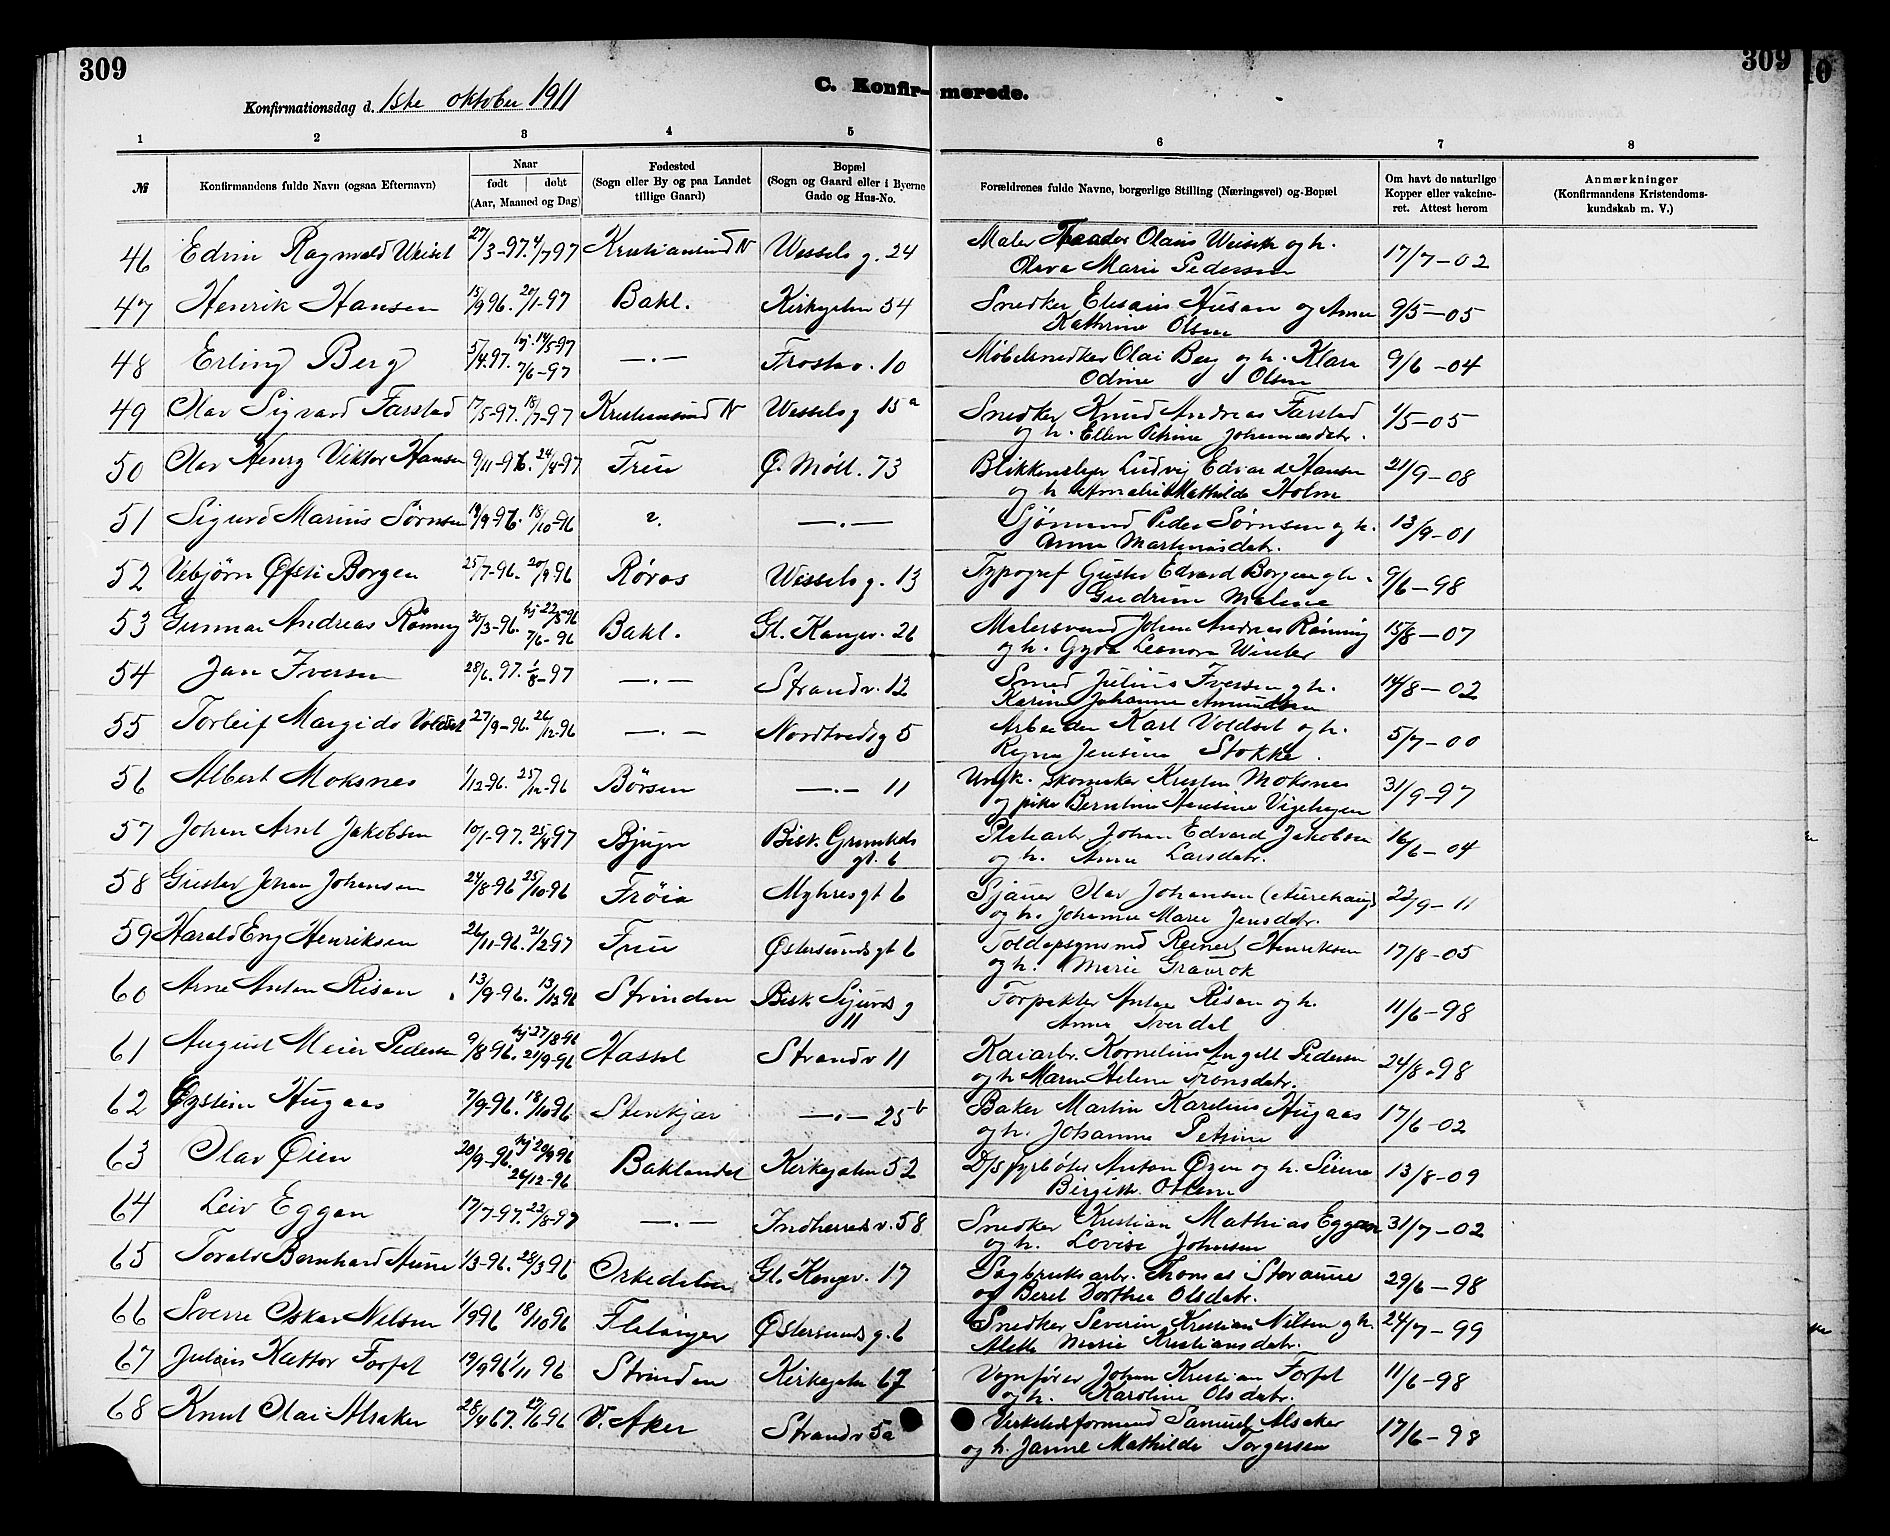 309
309
C. Konfirmerede.
Konfirmationsdag d. 1ste oktober 1911
1 2 3 4 5 6 7 8
№
Konfirmandens fulde Navn (ogsaa Efternavn)
Naar
født | døbt
(Aar, Maaned og Dag)
Fødested
(Sogn eller By og paa Landet
tillige Gaard)
Bopæl
(Sogn og Gaard eller i Byerne
Gade og Hus-No.
Forældrenes fulde Navne, borgerlige Stilling (Næringsvei) og Bopæl
Om havt de naturlige
Kopper eller vakcine-
ret. Attest herom
Anmærkninger
(Konfirmandens Kristendoms-
kundskab m. V.)
46 Edvin Ragnvald 27/3-97. 4/7 97 Kristiansund N Wessels g. 24 Maler Olaus og h. 17/7-02
Olava Marie Pedersen
47 Henrik Hansen 15/9 96. 20/1-97 Bakl. Kirkegaten 54 Snedker og Anna 9/5-05
Kathrine Olsen
48 Erling Berg 5/4 97. hj. 14/5-97 —.— Frostav. 10 Møbelsnedker Olai Berg og h. Klara 9/6-04
7/6-97 Odine Olsen
49 Olav Sigvard Farstad 17/5-97. 18/7-97 Kristiansund N Wessels g 15a Snedker Knud Andreas Farstad 1/5-05
og h. Ellen Petrine Johannesdatr.
50 Olav Henry Viktor Hansen 9/11-96. 24/4-97 Frue Ø. Möll. 73 Blikkenslager Ludvig Edvard Hansen 21/9-08
og h. Amalie Mathilde Holm
51 Sigurd Marius Sörnsen 19/9-96. 18/10-96 —.— Sjömand Peder Sörnsen og h. 13/9-01
Anne Martinusdatr.
52 Vebjörn Øfsti Borgen 25/7-96. 20/9-96 Röros Wessels g. 13 Typograf Gustav Edvard Borgen og h. 9/6-98
Gudrun Malene
53 Gunnar Andreas Rönning 30/3-96. hj 22/5-96 Bakl. Gl. Kongev. 26 Malersvend Johan Andreas Rönning 15/8-07
7/6-96 og h. Gyda Leonora Winter
54 Jan Iversen 28/6. 97. 1/8-97 —.— Strandv. 12 Smed Julius Iversen og h. 14/8-02
Karine Johanne Amundsen
55 Torleif Margido Voldset 27/9-96. 26/12-96 —.— Nordtvedtg 5 Arbeider Karl Voldset og h. 5/7-00
Jensine Stokke.
56 Albert Moksnes 1/12-96. 25/12-96 Börsen —.— 11 Ungk. skomaker Kristen Moksnes 31/9-97
og pike Berntine Hansine
57 Johan Arnt Jakobsen 10/1-97. 25/4 97 Bjugn Bisk. Grimkels Johan Edvard Jakobsen 16/6-04
gt. 6 og h. Anne Larsdatr.
58 Gustav Johan Johansen 24/8-96 25/10-96 Fröia Myhresgt 6 Sjauer Olav Johansen 22/9-11
og h. Johanne Marie Jensdatr.
59 Harald Henriksen 26/11-96. 21/2 97 Frue Østersundsgt 6 Toldopsynsmd Reinert Henriksen 17/8-05
og h. Marie Gravrok
60 Arne Anton Risan 13/9-96. 13/12 96 Strinden Bisk Sigurds g Forpakter Risan og h. 11/6-98
11 Anna Tverdal
61 August Meier Pedersen 9/8 96. hj 27/8-96 Hassel Strandv 11 Kaiarb. Kornelius Angell Pedersen 24/8-98
24/9-96 og h Maren Helene Tronsdatr.
62 Øystein Hugaas 7/9-96. 18/10 96 Stenkjær —.— 25b Baker Martin Karelius Hugaas 17/6-02
og h. Johanna Petrine
63 Olav Øien 20/9-96. hj 29/9 96 Baklandet Kirkegaten 52 D/S fyrböter Anton Øyen og h. 13/8-09
26/12-96 Birgitte
64 Leiv Eggen 17/7-97. 22/8-97 —.— Indherredsv. 58 Snedker Kristian Mathias Eggen 31/7-02
og h. Lovise Johnsen
65 Torals Bernhard Aune 1/3-96. 28/3 96 Orkedalen Gl. Kongev. 17 Sagbruksarb. Thomas Storaune 29/6-98
og Beret Dorthea Olsdatr.
66 Sverre Oskar Nilsen 1/9 96 18/10 96 Flatanger Østersundsg. 6 Snedker Severin Kristian Nilsen og h. 24/7-99
Aletta Marie Kristiansdatr.
67 Julius Forfot 19/9 96 1/11 96 Strinden Kirkegaten 67 Vognfører Johan Kristian Forfot 11/6-98
og h. Karoline Olsdatr.
68 Knut Olai Alsaker V. Aker Strandv 5a Verkstedsformand Samuel Alsaker 17/6-98
og h. Janne Mathilde Torgersen